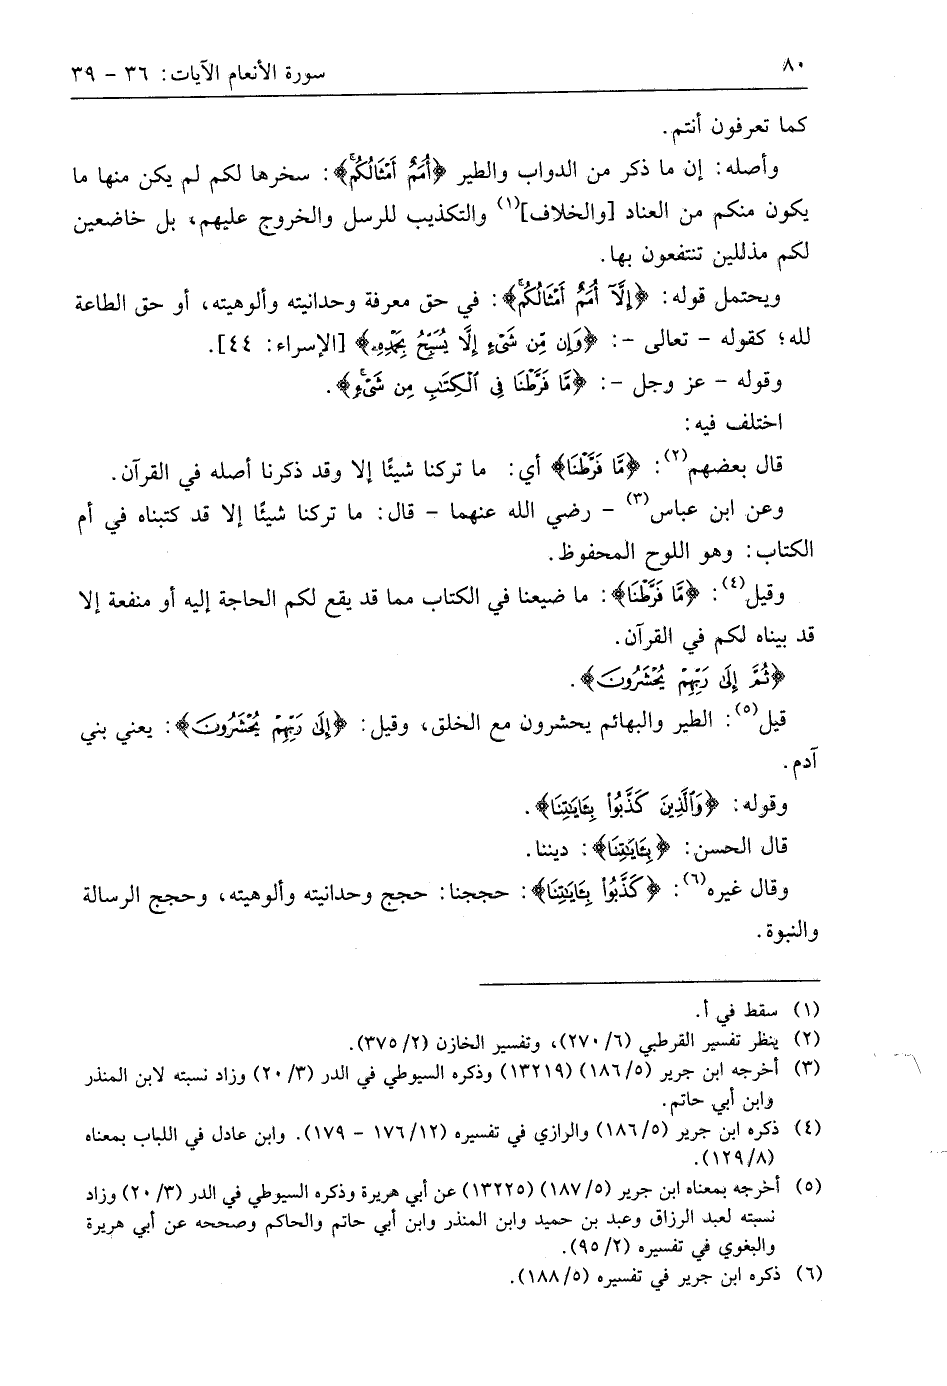 ٨٠
سورة الأنعام الآيات: ٣٦ - ٣٩
كما تعرفون أنتم.
وأصله: إن ما ذكر من الدواب والطير ﴿أُمَمٌ أَمْثَالُكُمْ﴾: سخرها لكم لم يكن منها ما
يكون منكم من العناد [والخلاف](١) والتكذيب للرسل والخروج عليهم، بل خاضعين
لكم مذللين تنتفعون بها.
ويحتمل قوله: ﴿إِلَّآ أُمَمٌ أَمْثَالُكُمْ﴾: في حق معرفة وحدانيته وألوهيته، أو حق الطاعة
لله؛ كقوله - تعالى -: ﴿وَإِن مِّن شَىْءٍ إِلَّا يُسَبِّحُ بِحَمْدِهِۦ﴾ [الإسراء: ٤٤].
وقوله - عز وجل -: ﴿مَّا فَرَّطْنَا فِى ٱلْكِتَٰبِ مِن شَىْءٍ﴾.
اختلف فيه:
قال بعضهم(٢): ﴿مَّا فَرَّطْنَا﴾ أي: ما تركنا شيئًا إلا وقد ذكرنا أصله في القرآن.
وعن ابن عباس(٣) - رضي الله عنهما - قال: ما تركنا شيئًا إلا قد كتبناه في أم
الكتاب: وهو اللوح المحفوظ.
وقيل(٤): ﴿مَّا فَرَّطْنَا﴾: ما ضيعنا في الكتاب مما قد يقع لكم الحاجة إليه أو منفعة إلا
قد بيناه لكم في القرآن.
﴿ثُمَّ إِلَىٰ رَبِّهِمْ يُحْشَرُونَ﴾.
قيل(٥): الطير والبهائم يحشرون مع الخلق، وقيل: ﴿إِلَىٰ رَبِّهِمْ يُحْشَرُونَ﴾: يعني بني
آدم.
وقوله: ﴿وَٱلَّذِينَ كَذَّبُوا۟ بِـَٔايَٰتِنَا﴾.
قال الحسن: ﴿بِـَٔايَٰتِنَا﴾: ديننا.
وقال غيره(٦): ﴿كَذَّبُوا۟ بِـَٔايَٰتِنَا﴾: حججنا: حجج وحدانيته وألوهيته، وحجج الرسالة
والنبوة.
(١) سقط في أ.
(٢) ينظر تفسير القرطبي (٦/ ٢٧٠)، وتفسير الخازن (٢/ ٣٧٥).
(٣) أخرجه ابن جرير (٥/ ١٨٦) (١٣٢١٩) وذكره السيوطي في الدر (٣/ ٢٠) وزاد نسبته لابن المنذر
وابن أبي حاتم.
(٤) ذكره ابن جرير (٥/ ١٨٦) والرازي في تفسيره (١٢/ ١٧٦ - ١٧٩). وابن عادل في اللباب بمعناه
(٨/ ١٢٩).
(٥) أخرجه بمعناه ابن جرير (٥/ ١٨٧) (١٣٢٢٥) عن أبي هريرة وذكره السيوطي في الدر (٣/ ٢٠) وزاد
نسبته لعبد الرزاق وعبد بن حميد وابن المنذر وابن أبي حاتم والحاكم وصححه عن أبي هريرة
والبغوي في تفسيره (٢/ ٩٥).
(٦) ذكره ابن جرير في تفسيره (٥/ ١٨٨).